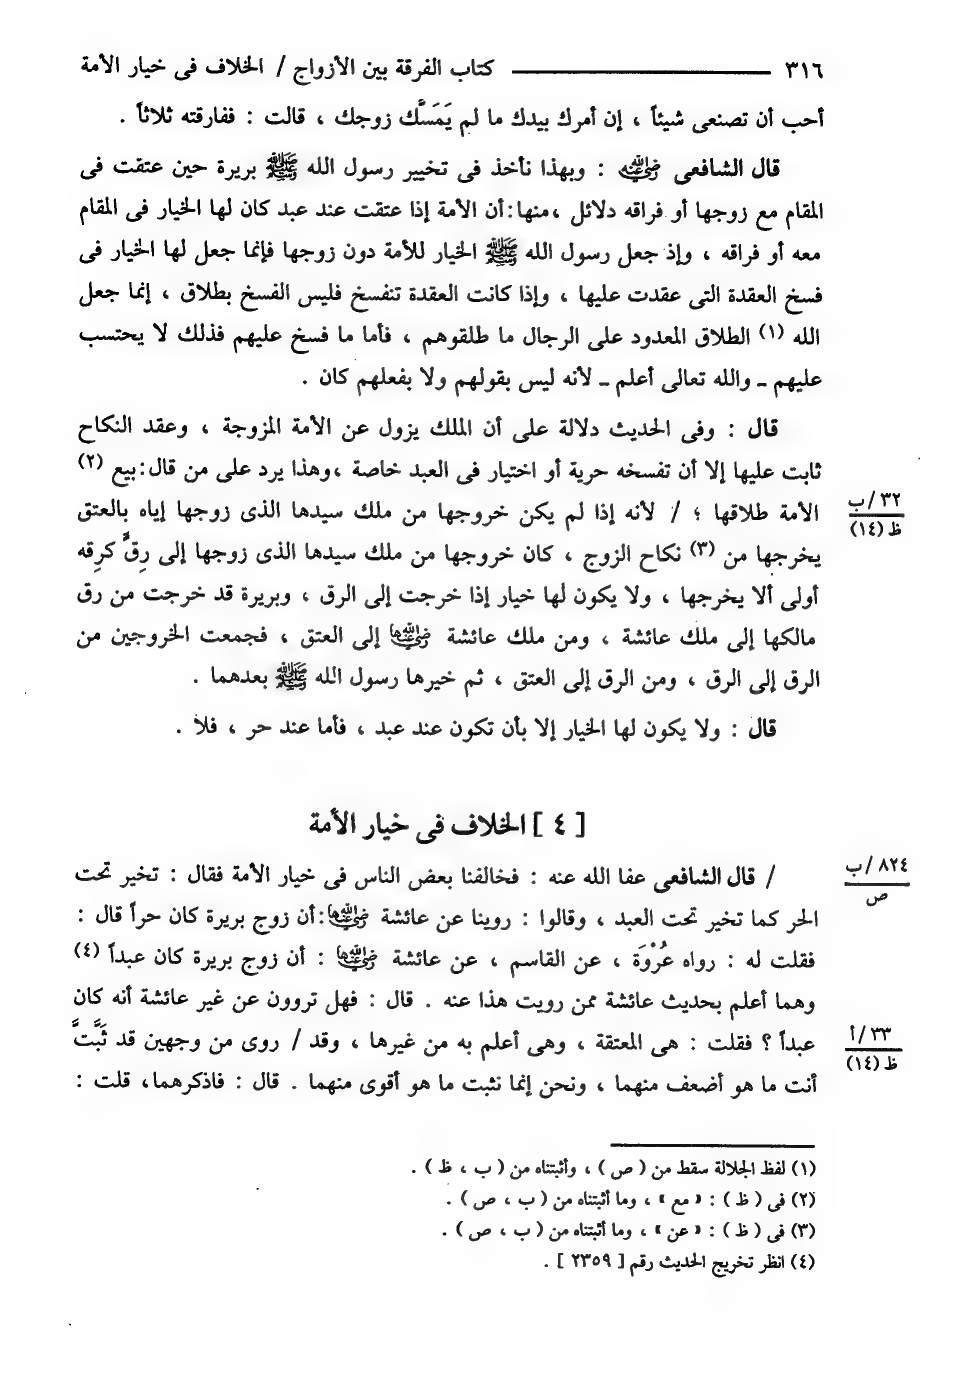 ٣١٦ كتاب الفرقة بين الأزواج / الخلاف فى خيار الأمة
أحب أن تصنعى شيئاً ، إن أمرك بيدك ما لم يَمَسَّك زوجك ، قالت : ففارقته ثلاثاً .
قال الشافعى رضي الله عنه : وبهذا نأخذ فى تخيير رسول الله ﷺ بريرة حين عتقت فى
المقام مع زوجها أو فراقه دلائل ،منها:أن الأمة إذا عتقت عند عبد كان لها الخيار فى المقام
معه أو فراقه ، وإذ جعل رسول الله ﷺ الخيار للأمة دون زوجها فإنما جعل لها الخيار فى
فسخ العقدة التى عقدت عليها ، وإذا كانت العقدة تنفسخ فليس الفسخ بطلاق ، إنما جعل
الله (١) الطلاق المعدود على الرجال ما طلقوهم ، فأما ما فسخ عليهم فذلك لا يحتسب
عليهم ـ والله تعالى أعلم ـ لأنه ليس بقولهم ولا بفعلهم كان .
قال : وفى الحديث دلالة على أن الملك يزول عن الأمة المزوجة ، وعقد النكاح
ثابت عليها إلا أن تفسخه حرية أو اختيار فى العبد خاصة ،وهذا يرد على من قال:بيع (٢)
الأمة طلاقها ؛ / لأنه إذا لم يكن خروجها من ملك سيدها الذى زوجها إياه بالعتق
٣٢/ب
ظ (١٤)
يخرجها من (٣) نكاح الزوج ، كان خروجها من ملك سيدها الذى زوجها إلى رِقٌّ كرِقه
أولى ألا يخرجها ، ولا يكون لها خيار إذا خرجت إلى الرق ، وبريرة قد خرجت من رق
مالكها إلى ملك عائشة ، ومن ملك عائشة رضي الله عنها إلى العتق ، فجمعت الخروجين من
الرق إلى الرق ، ومن الرق إلى العتق ، ثم خيرها رسول الله ﷺ بعدهما .
قال : ولا يكون لها الخيار إلا بأن تكون عند عبد ، فأما عند حر ، فلا .
[ ٤ ] الخلاف فى خيار الأمة
/ قال الشافعى عفا الله عنه : فخالفنا بعض الناس فى خيار الأمة فقال : تخير تحت
٨٢٤/ب
ص
الحر كما تخير تحت العبد ، وقالوا : روينا عن عائشة رضي الله عنها:أن زوج بريرة كان حراً قال :
فقلت له : رواه عُرْوَة ، عن القاسم ، عن عائشة رضي الله عنها : أن زوج بريرة كان عبداً (٤)
وهما أعلم بحديث عائشة ممن رويت هذا عنه . قال : فهل تروون عن غير عائشة أنه كان
عبداً ؟ فقلت : هى المعتقة ، وهى أعلم به من غيرها ، وقد / روى من وجهين قد ثَبَّتَّ
٣٣/أ
ظ (١٤)
أنت ما هو أضعف منهما ، ونحن إنما نثبت ما هو أقوى منهما . قال : فاذكرهما، قلت :
(١) لفظ الجلالة سقط من ( ص ) ، وأثبتناه من ( ب ، ظ ) .
(٢) فى ( ظ ) : « مع » ، وما أثبتناه من ( ب ، ص ) .
(٣) فى ( ظ ) : « عن » ، وما أثبتناه من ( ب ، ص ) .
(٤) انظر تخريج الحديث رقم [ ٢٣٥٩ ] .